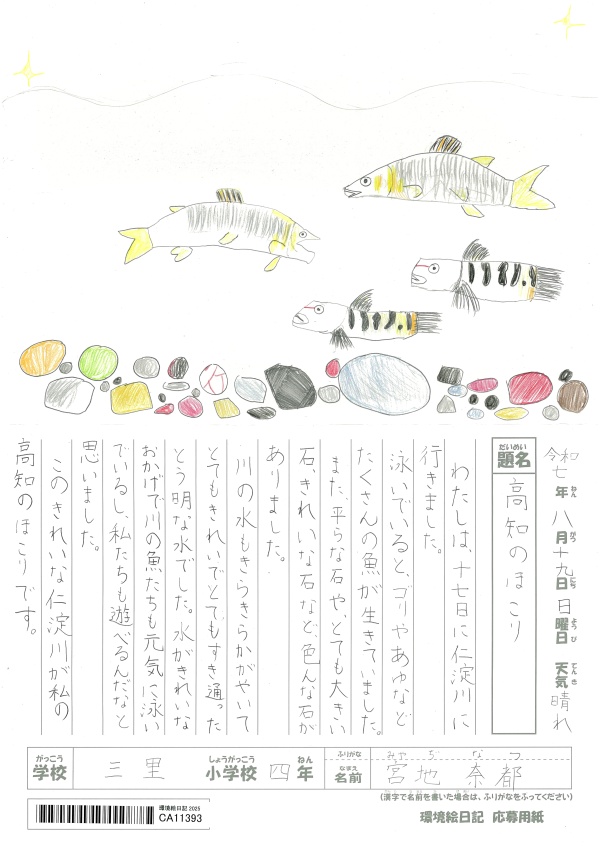 令和七年八月十九日日曜日 天気晴れ
ねん がつ にち ようび てんき
だいめい
題名 高知のほこり
わたしは、十七日に仁淀川に
行きました。
泳いでいると、ゴリやあゆなど
たくさんの魚が生きていました。
また、平らな石や、とても大きい
石、きれいな石など、色んな石が
ありました。
川の水もきらきらかがやいて
とてもきれいでとてもすき通った
とう明な水でした。水がきれいな
おかげで川の魚たちも元気に泳い
でいるし、私たちも遊べるんだなと
思いました。
このきれいな仁淀川が私の
高知のほこりです。
がっこう しょうがっこう ねん ふりがな みやぢ なつ
学校 三里 小学校 四年 なまえ 名前 宮地 奈都
(漢字で名前を書いた場合は、ふりがなをふってください)
環境絵日記 応募用紙
環境絵日記 2025
CA11393